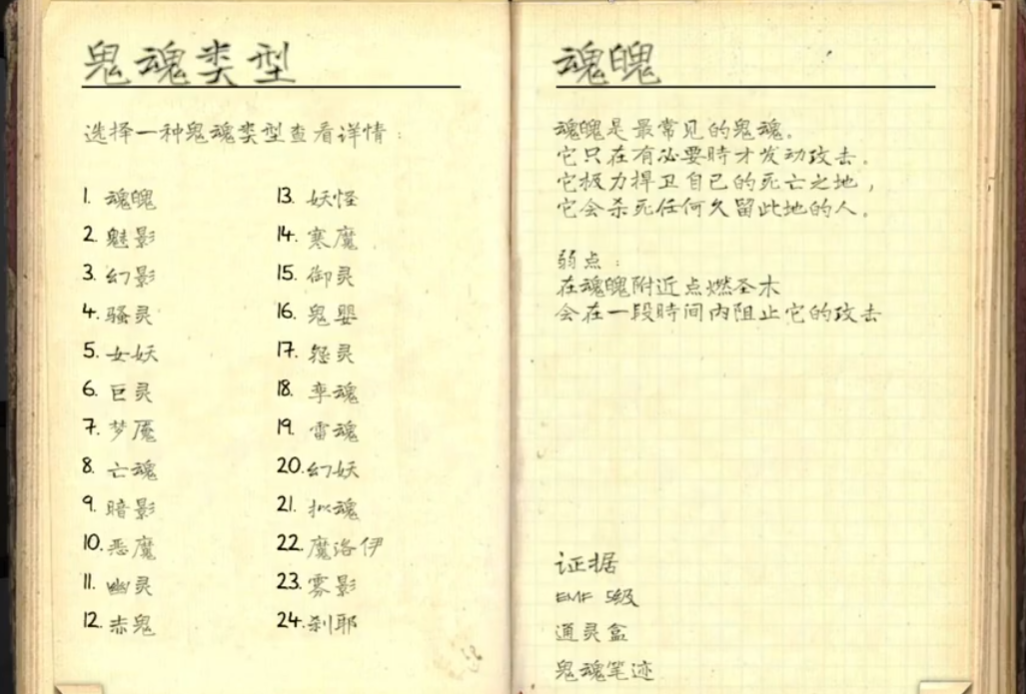 鬼魂类型
选择一种鬼魂类型查看详情：
1. 魂魄
2. 魅影
3. 幻影
4. 骚灵
5. 女妖
6. 巨灵
7. 梦魇
8. 亡魂
9. 暗影
10. 恶魔
11. 幽灵
12. 赤鬼
13. 妖怪
14. 寒魔
15. 御灵
16. 鬼婴
17. 怨灵
18. 孪魂
19. 雷魂
20. 幻妖
21. 拟魂
22. 魔洛伊
23. 雾影
24. 刹耶
魂魄
魂魄是最常见的鬼魂。
它只在有必要時才发动攻击。
它极力捍卫自己的死亡之地，
它会杀死任何久留此地的人。
弱点：
在魂魄附近点燃圣木
会在一段時间内阻止它的攻击
证据
EMF 5级
通灵盒
鬼魂笔迹